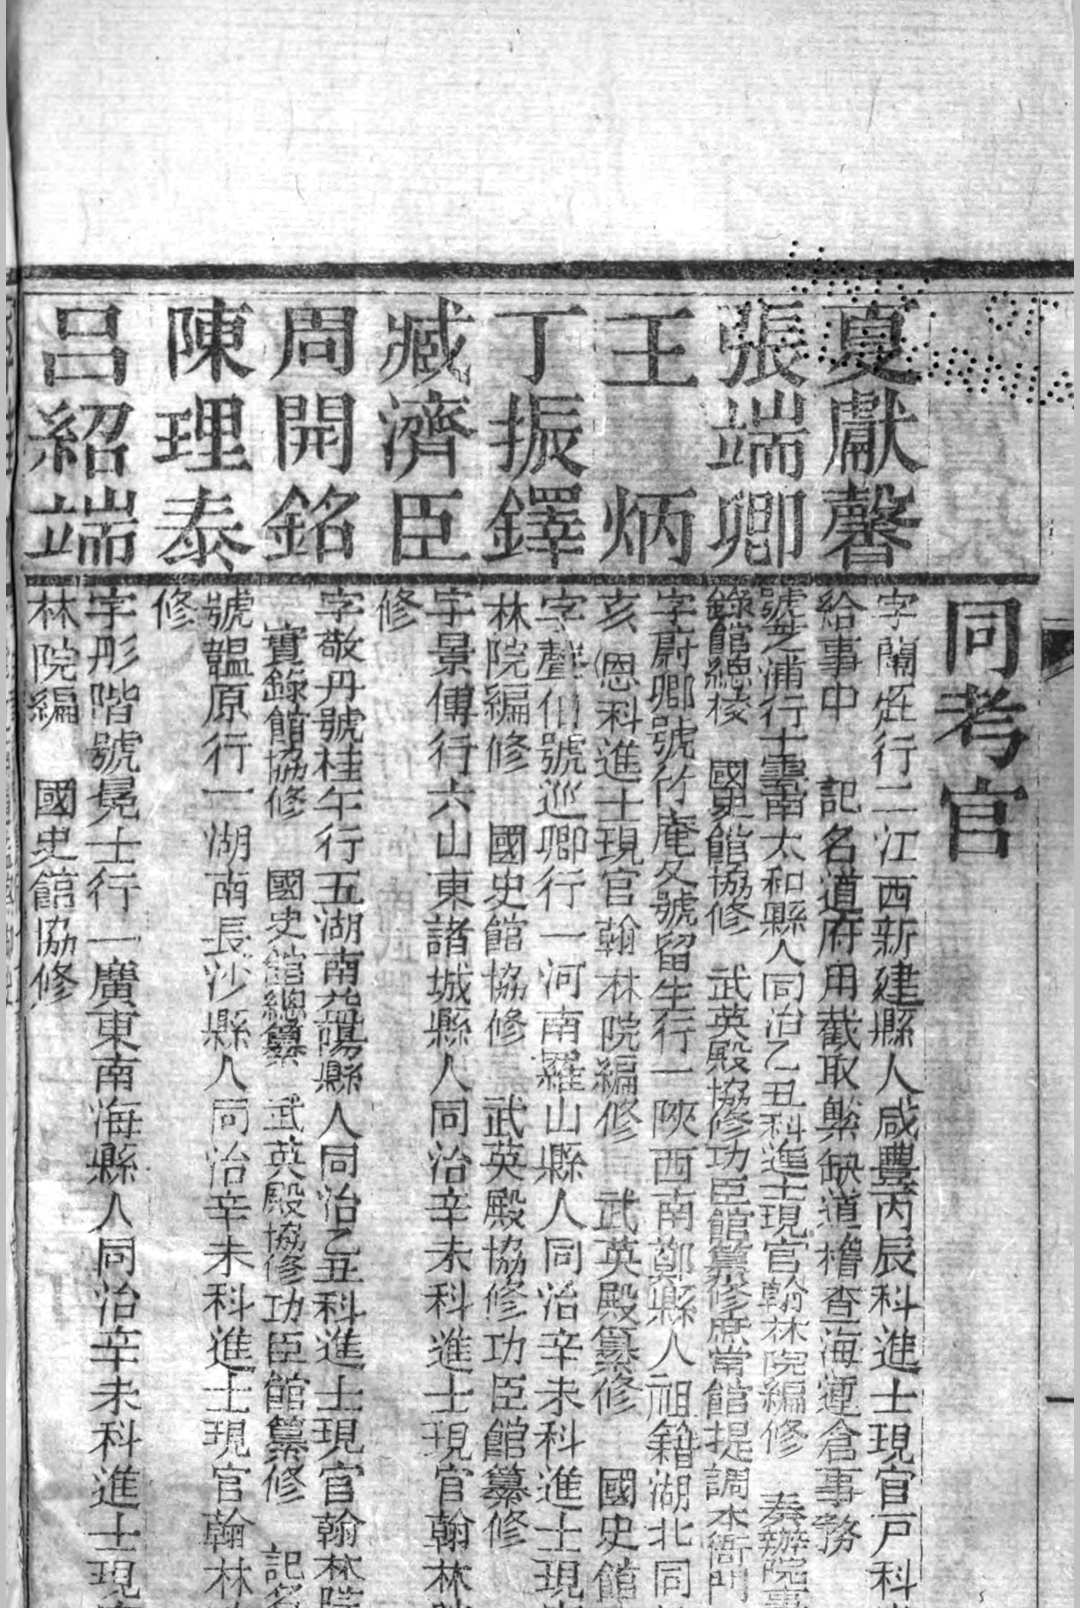 同考官
夏獻馨
字蘭皆行二江西新建縣人咸豐丙辰科進士現官戶科
給事中 記名道府用截取繁缺道稽查海運倉事務
張端卿
號芝浦行十雲南太和縣人同治乙丑科進士現官翰林院編修 奏辦院事
錄館總校 國史館協修 武英殿協修功臣館纂修庶常館提調本衙門
王炳
字蔚卿號竹庵又號留生行一陝西南鄭縣人祖籍湖北同
亥恩科進士現官翰林院編修 武英殿纂修 國史館
丁振鐸
字聲伯號巡卿行一河南羅山縣人同治辛未科進士現
林院編修 國史館協修 武英殿協修功臣館纂修
臧濟臣
字景傅行六山東諸城縣人同治辛未科進士現官翰林
修
周開銘
字敬丹號桂午行五湖南益陽縣人同治乙丑科進士現官翰林院
實錄館協修 國史館總纂 武英殿協修功臣館纂修 記名
陳理泰
號韞原行一湖南長沙縣人同治辛未科進士現官翰林
修
呂紹端
字彤階號冕士行一廣東南海縣人同治辛未科進士現
林院編 國史館協修